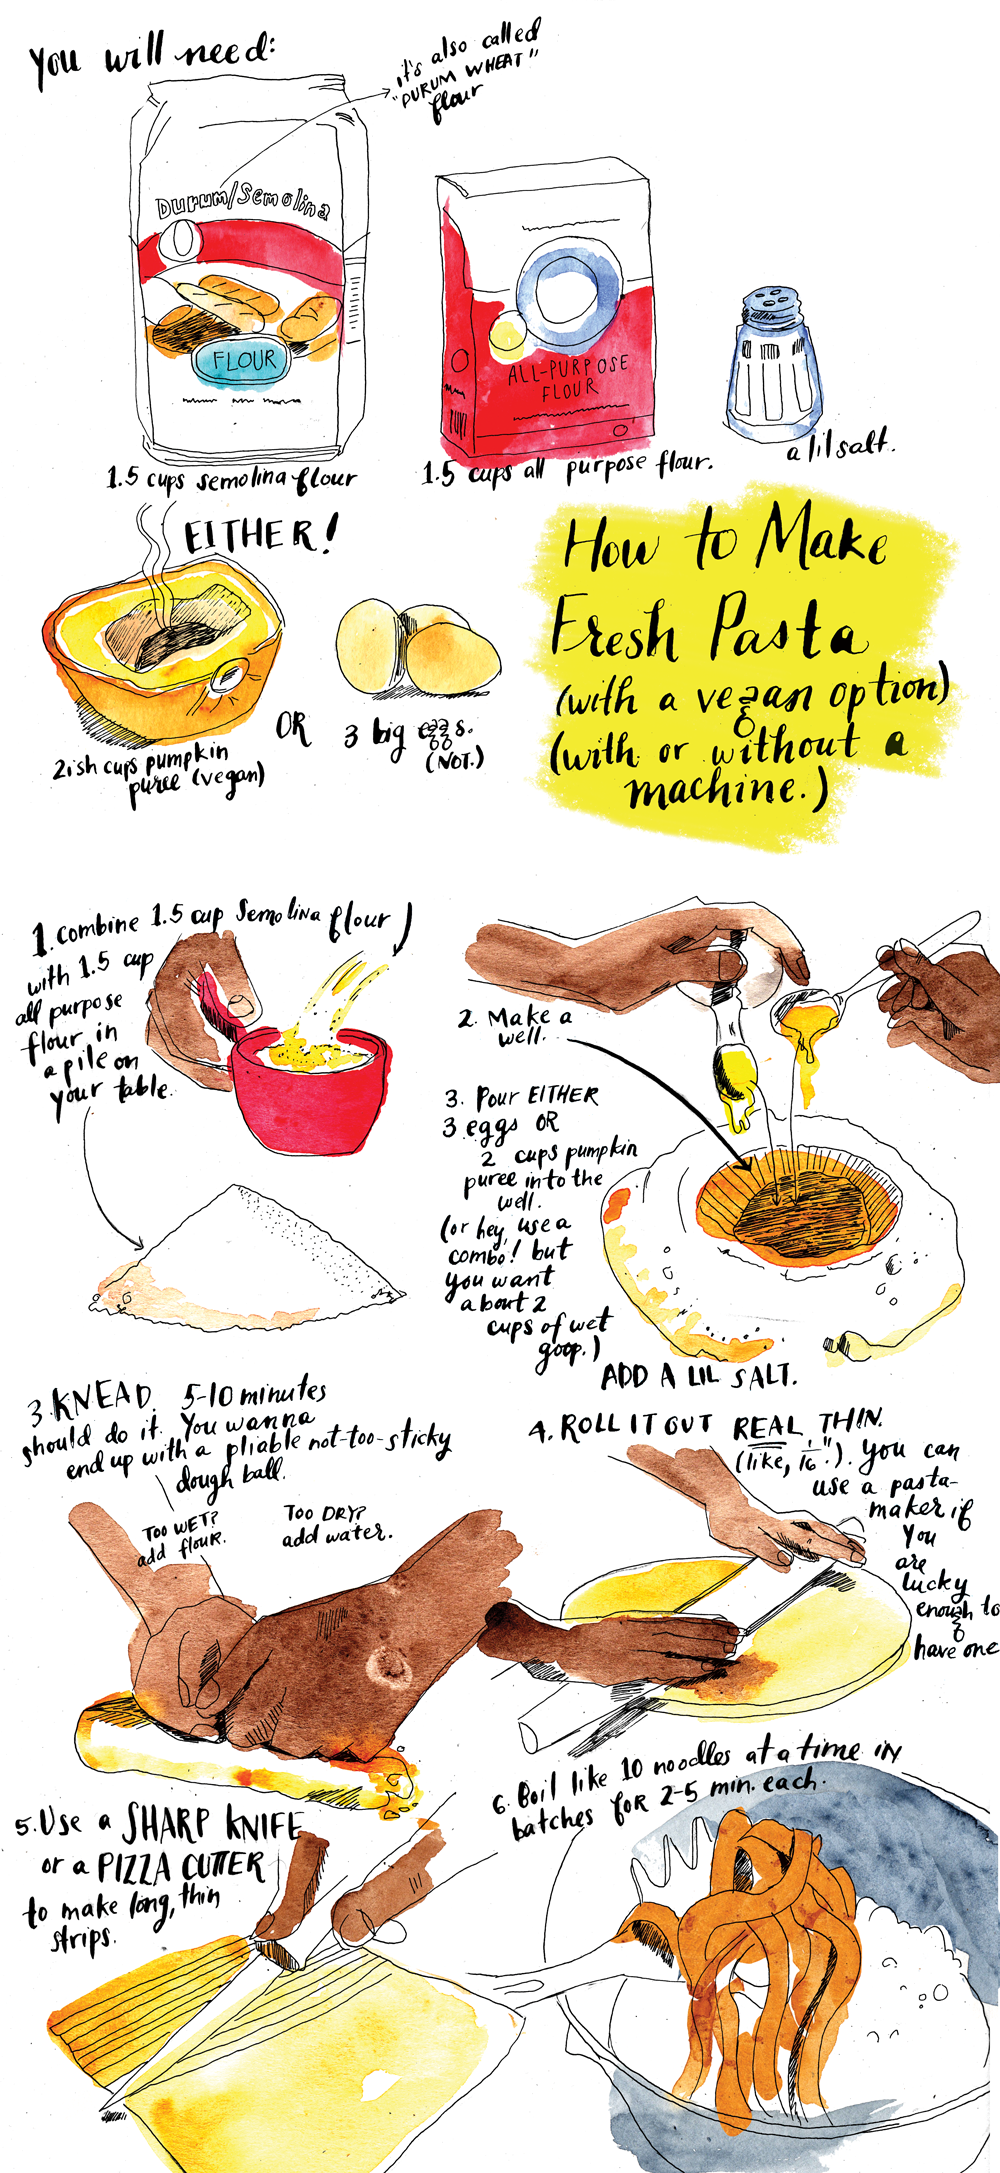 You will need:
it's also called
"DURUM WHEAT"
flour
Durum/Semolina
FLOUR
1.5 cups semolina flour
ALL-PURPOSE
FLOUR
1.5 cups all purpose flour.
a lil salt.
EITHER!
2ish cups pumpkin
puree (vegan)
OR
3 big eggs.
(NOT.)
How to Make
Fresh Pasta
(with a vegan option)
(with or without a
machine.)
1. combine 1.5 cup Semolina flour
with 1.5 cup
all purpose
flour in
a pile on
your table.
2. Make a
well.
3. Pour EITHER
3 eggs OR
2 cups pumpkin
puree into the
well.
(or hey, use a
combo! but
you want
about 2
cups of wet
goop.)
ADD A LIL SALT.
3. KNEAD. 5-10 minutes
should do it. You wanna
end up with a pliable not-too-sticky
dough ball.
TOO WET?
add flour.
TOO DRY?
add water.
4. ROLL IT OUT REAL THIN.
(like, 1/16".). you can
use a pasta-
maker if
you
are
lucky
enough to
have one
5. Use a SHARP KNIFE
or a PIZZA CUTTER
to make long, thin
strips.
6. Boil like 10 noodles at a time in
batches for 2-5 min. each.